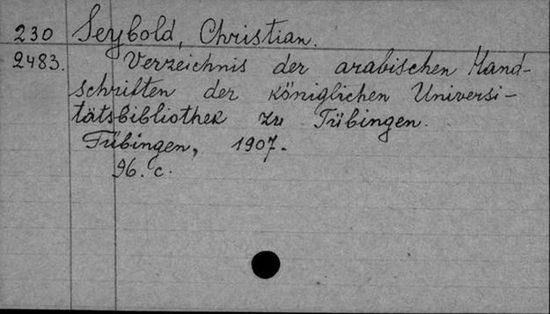 230 Seybold, Christian.
2483. Verzeichnis der arabischen Hand-
schriften der königlichen Universi-
tätsbibliothek zu Tübingen.
Tübingen, 1907.
96. c.